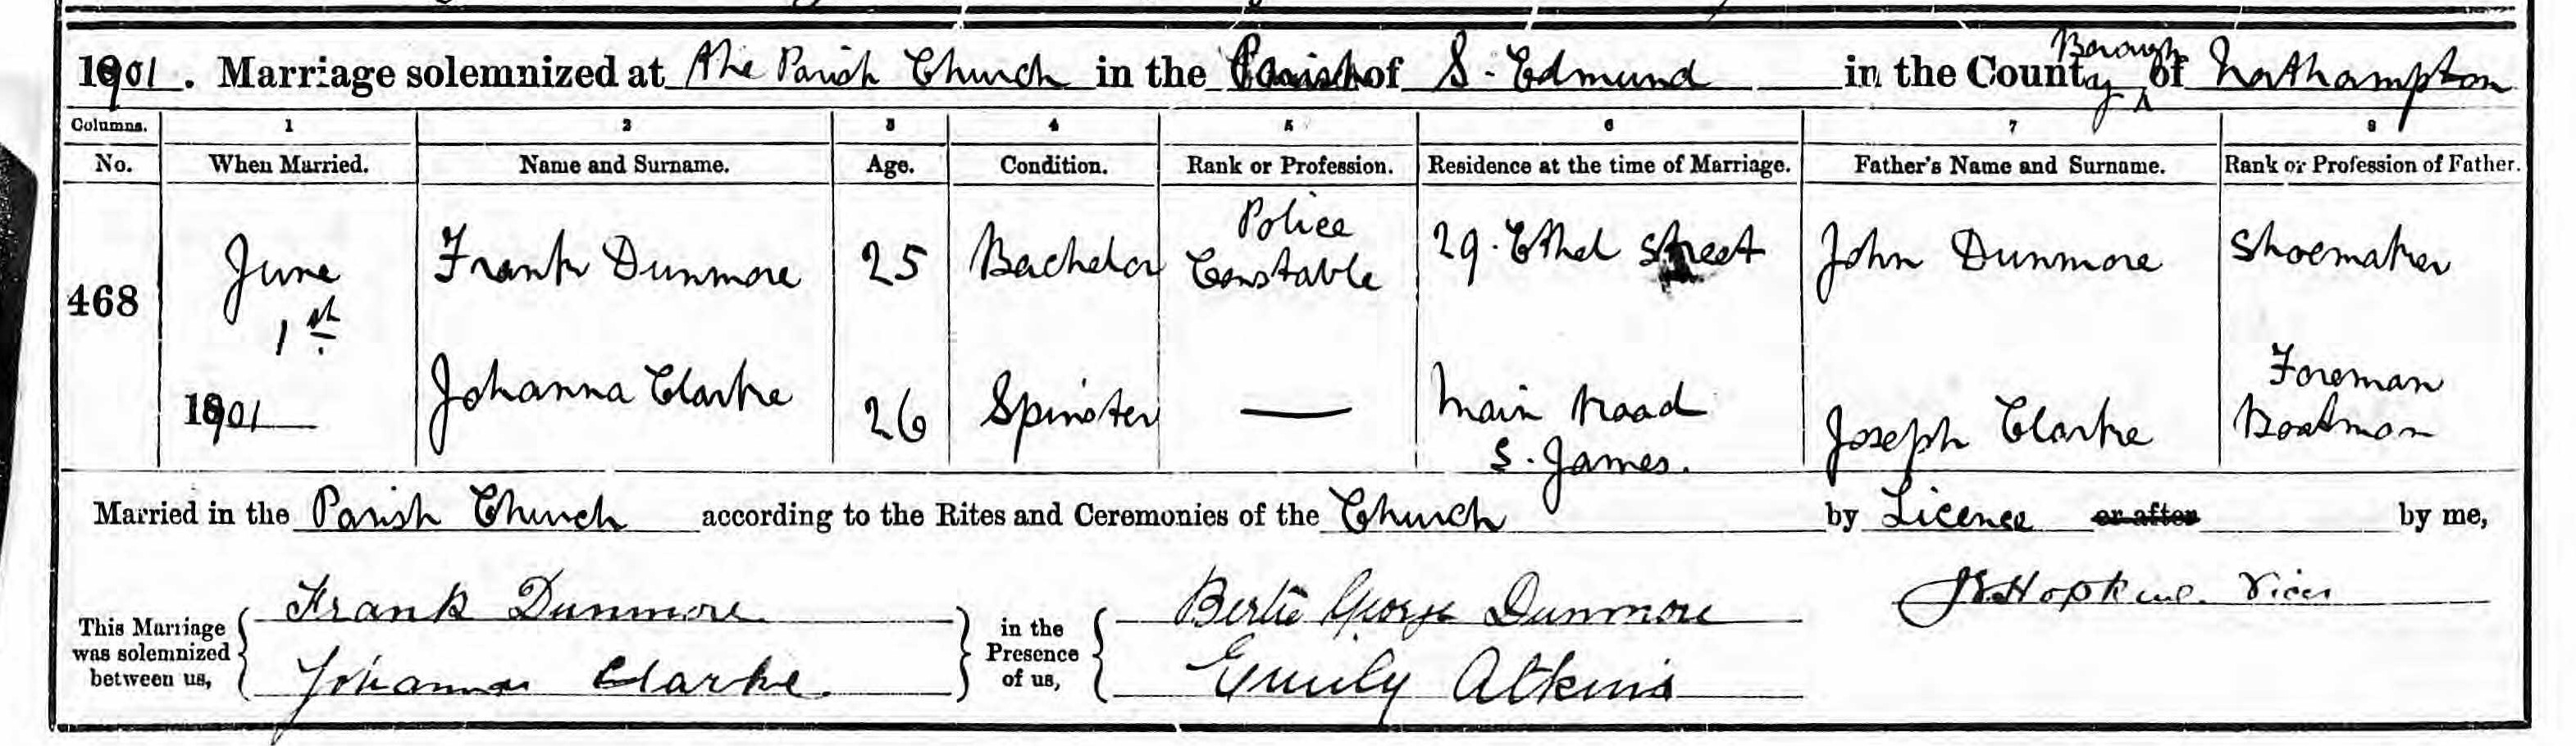 1901. Marriage solemnized at the Parish Church in the Parish of S. Edmund in the County Borough of Northampton
Columns. 1 2 3 4 5 6 7 8
No. When Married. Name and Surname. Age. Condition. Rank or Profession. Residence at the time of Marriage. Father's Name and Surname. Rank or Profession of Father.
468 June 1st 1901
Frank Dunmore 25 Bachelor Police Constable 29. Ethel Street John Dunmore Shoemaker
Johanna Clarke 26 Spinster — Main Road S. James. Joseph Clarke Foreman Boatman
Married in the Parish Church according to the Rites and Ceremonies of the Church by Licence or after by me,
This Marriage was solemnized between us, Frank Dunmore in the Presence of us, Bertie George Dunmore Hopkins. Vicar
Johanna Clarke Emily Atkins